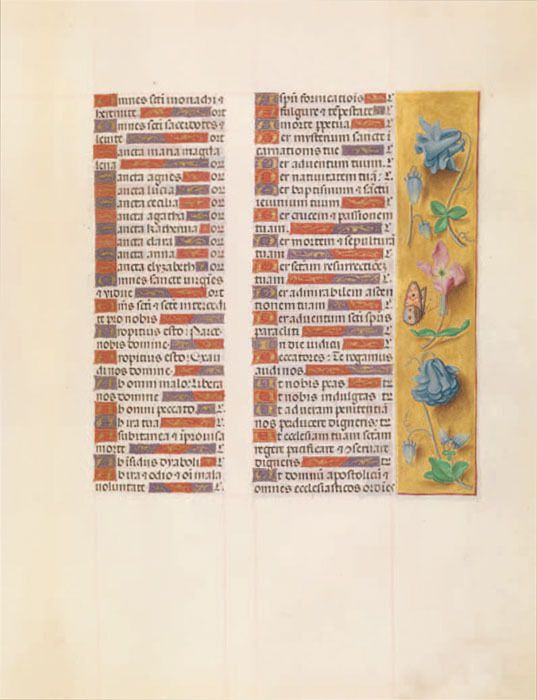 Omnes sc̄ti monachi ⁊
heremite ort
Omnes sc̄ti sacerdotes ⁊
leuite ort
Sancta maria magda
lena or̄
Sancta agnes or̄
Sancta lucia or̄
Sancta cecilia or̄
Sancta agatha or̄
Sancta katherina or̄
Sancta clara or̄
Sancta anna or̄
Sancta elyzabeth or̄
Omnes sancte uirgīes
⁊ uidue ort
Om̄s sc̄ti ⁊ sc̄te intercedi
te pro nobis
Propitius esto: Parce
nobis domine
Propitius esto: Exau
di nos domine
Ab omni malo: Libera
nos domine
Ab omni peccato l'.
Ab ira tua l'.
A subitanea ⁊ īprouisa
morte l'.
Ab īsidijs dyaboli l'.
Ab ira ⁊ odio ⁊ oī mala
uoluntate l'.
A spū fornicationis l'
A fulgure ⁊ tēpestate l'
A morte ppetua l'.
Per mysterium sancte ī
carnationis tue l'.
Per aduentum tuum. l'.
Per natiuitatem tuā: l'.
Per baptismum ⁊ sāctū
ieiunium tuum l'.
Per crucem ⁊ passionem
tuam. l'.
Per mortem ⁊ sepulturā
tuam l'.
Per sc̄tam resurrectiōez
tuam l'.
Per admirabilem ascen
tionem tuam l'.
Per aduentum sc̄ti spūs
paracliti l'.
In die iudicij l'.
Peccatores: Te rogamus
audi nos.
Ut nobis pcas tr̄
Ut nobis indulgeas tr̄
Ut ad ueram penitentiā
nos perducere digneris: tr̄
Ut ecclesiam tuam sc̄tam
regere pacificare ⁊ 9seruare
digneris tr̄
Ut domnū apostolicū ⁊
omnes ecclesiasticos ordīes